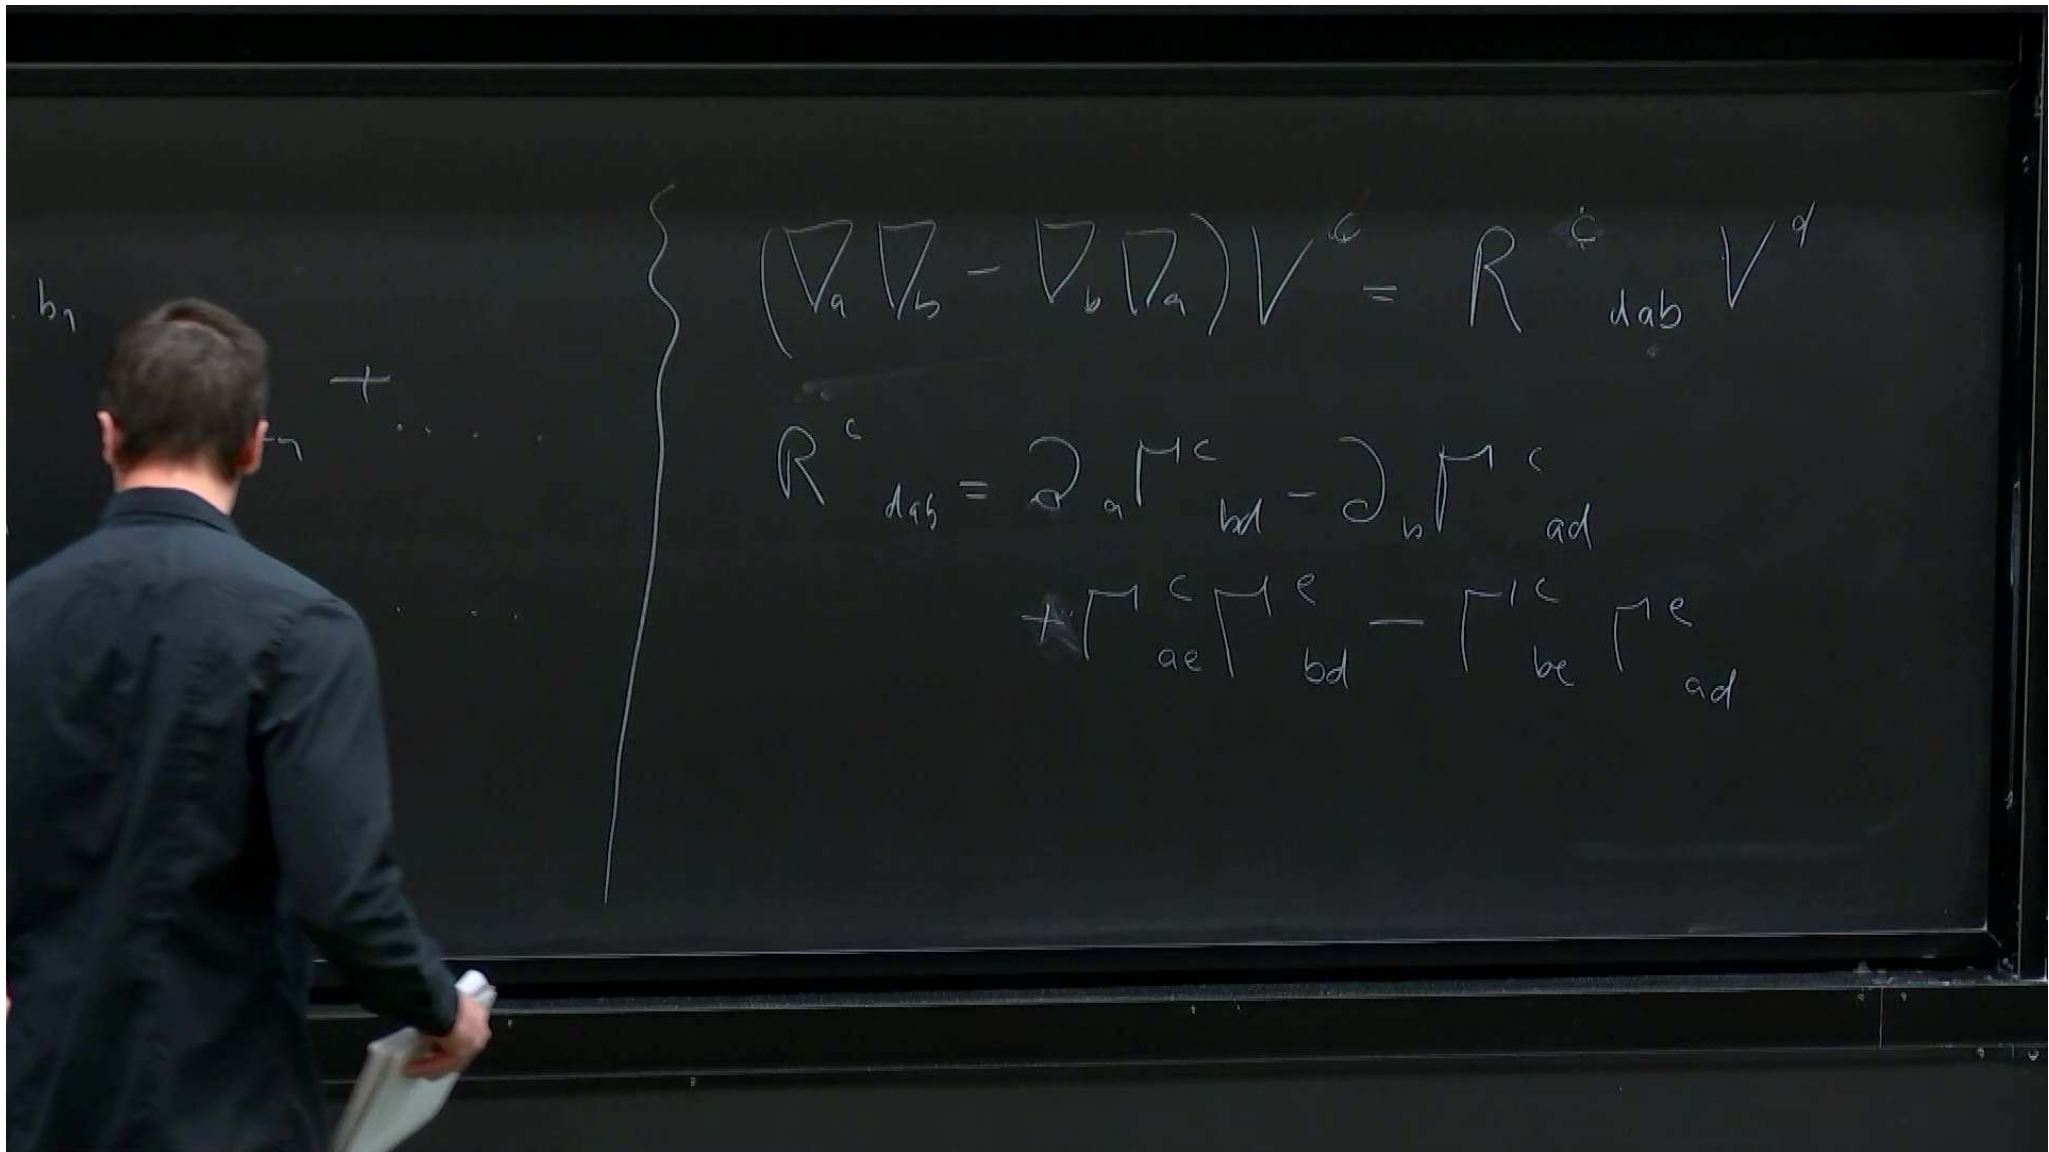 (∇_a ∇_b − ∇_b ∇_a) V^c = R^c_{dab} V^d
b_n
+ ....
R^c_{dab} = ∂_a Γ^c_{bd} − ∂_b Γ^c_{ad}
+ Γ^c_{ae} Γ^e_{bd} − Γ^c_{be} Γ^e_{ad}